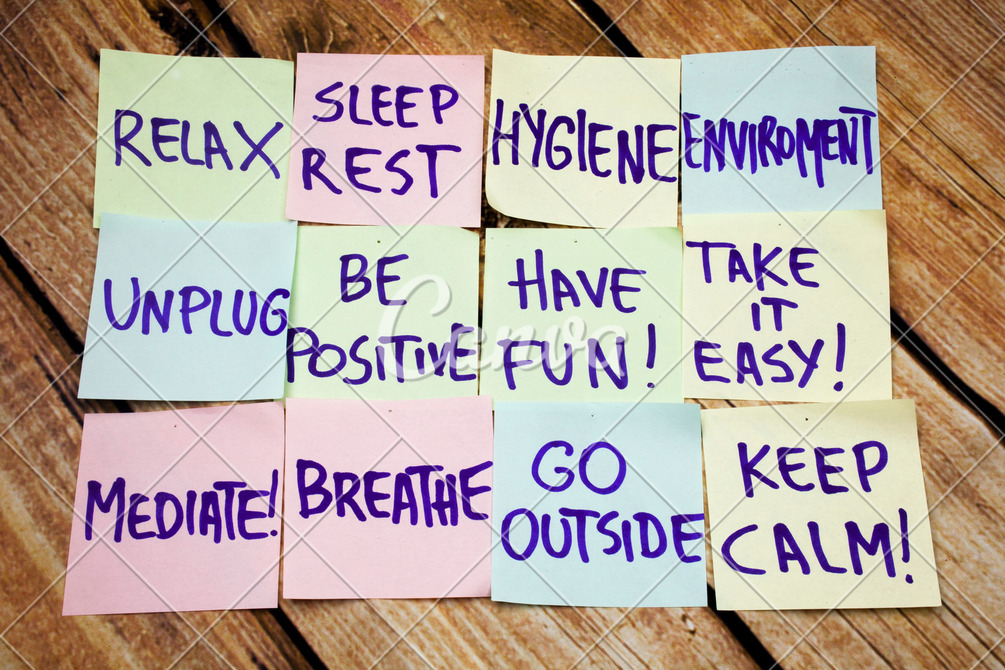 RELAX
SLEEP
REST
HYGIENE
ENVIROMENT
UNPLUG
BE
POSITIVE
HAVE
FUN!
TAKE
IT
EASY!
MEDIATE!
BREATHE
GO
OUTSIDE
KEEP
CALM!
Canva